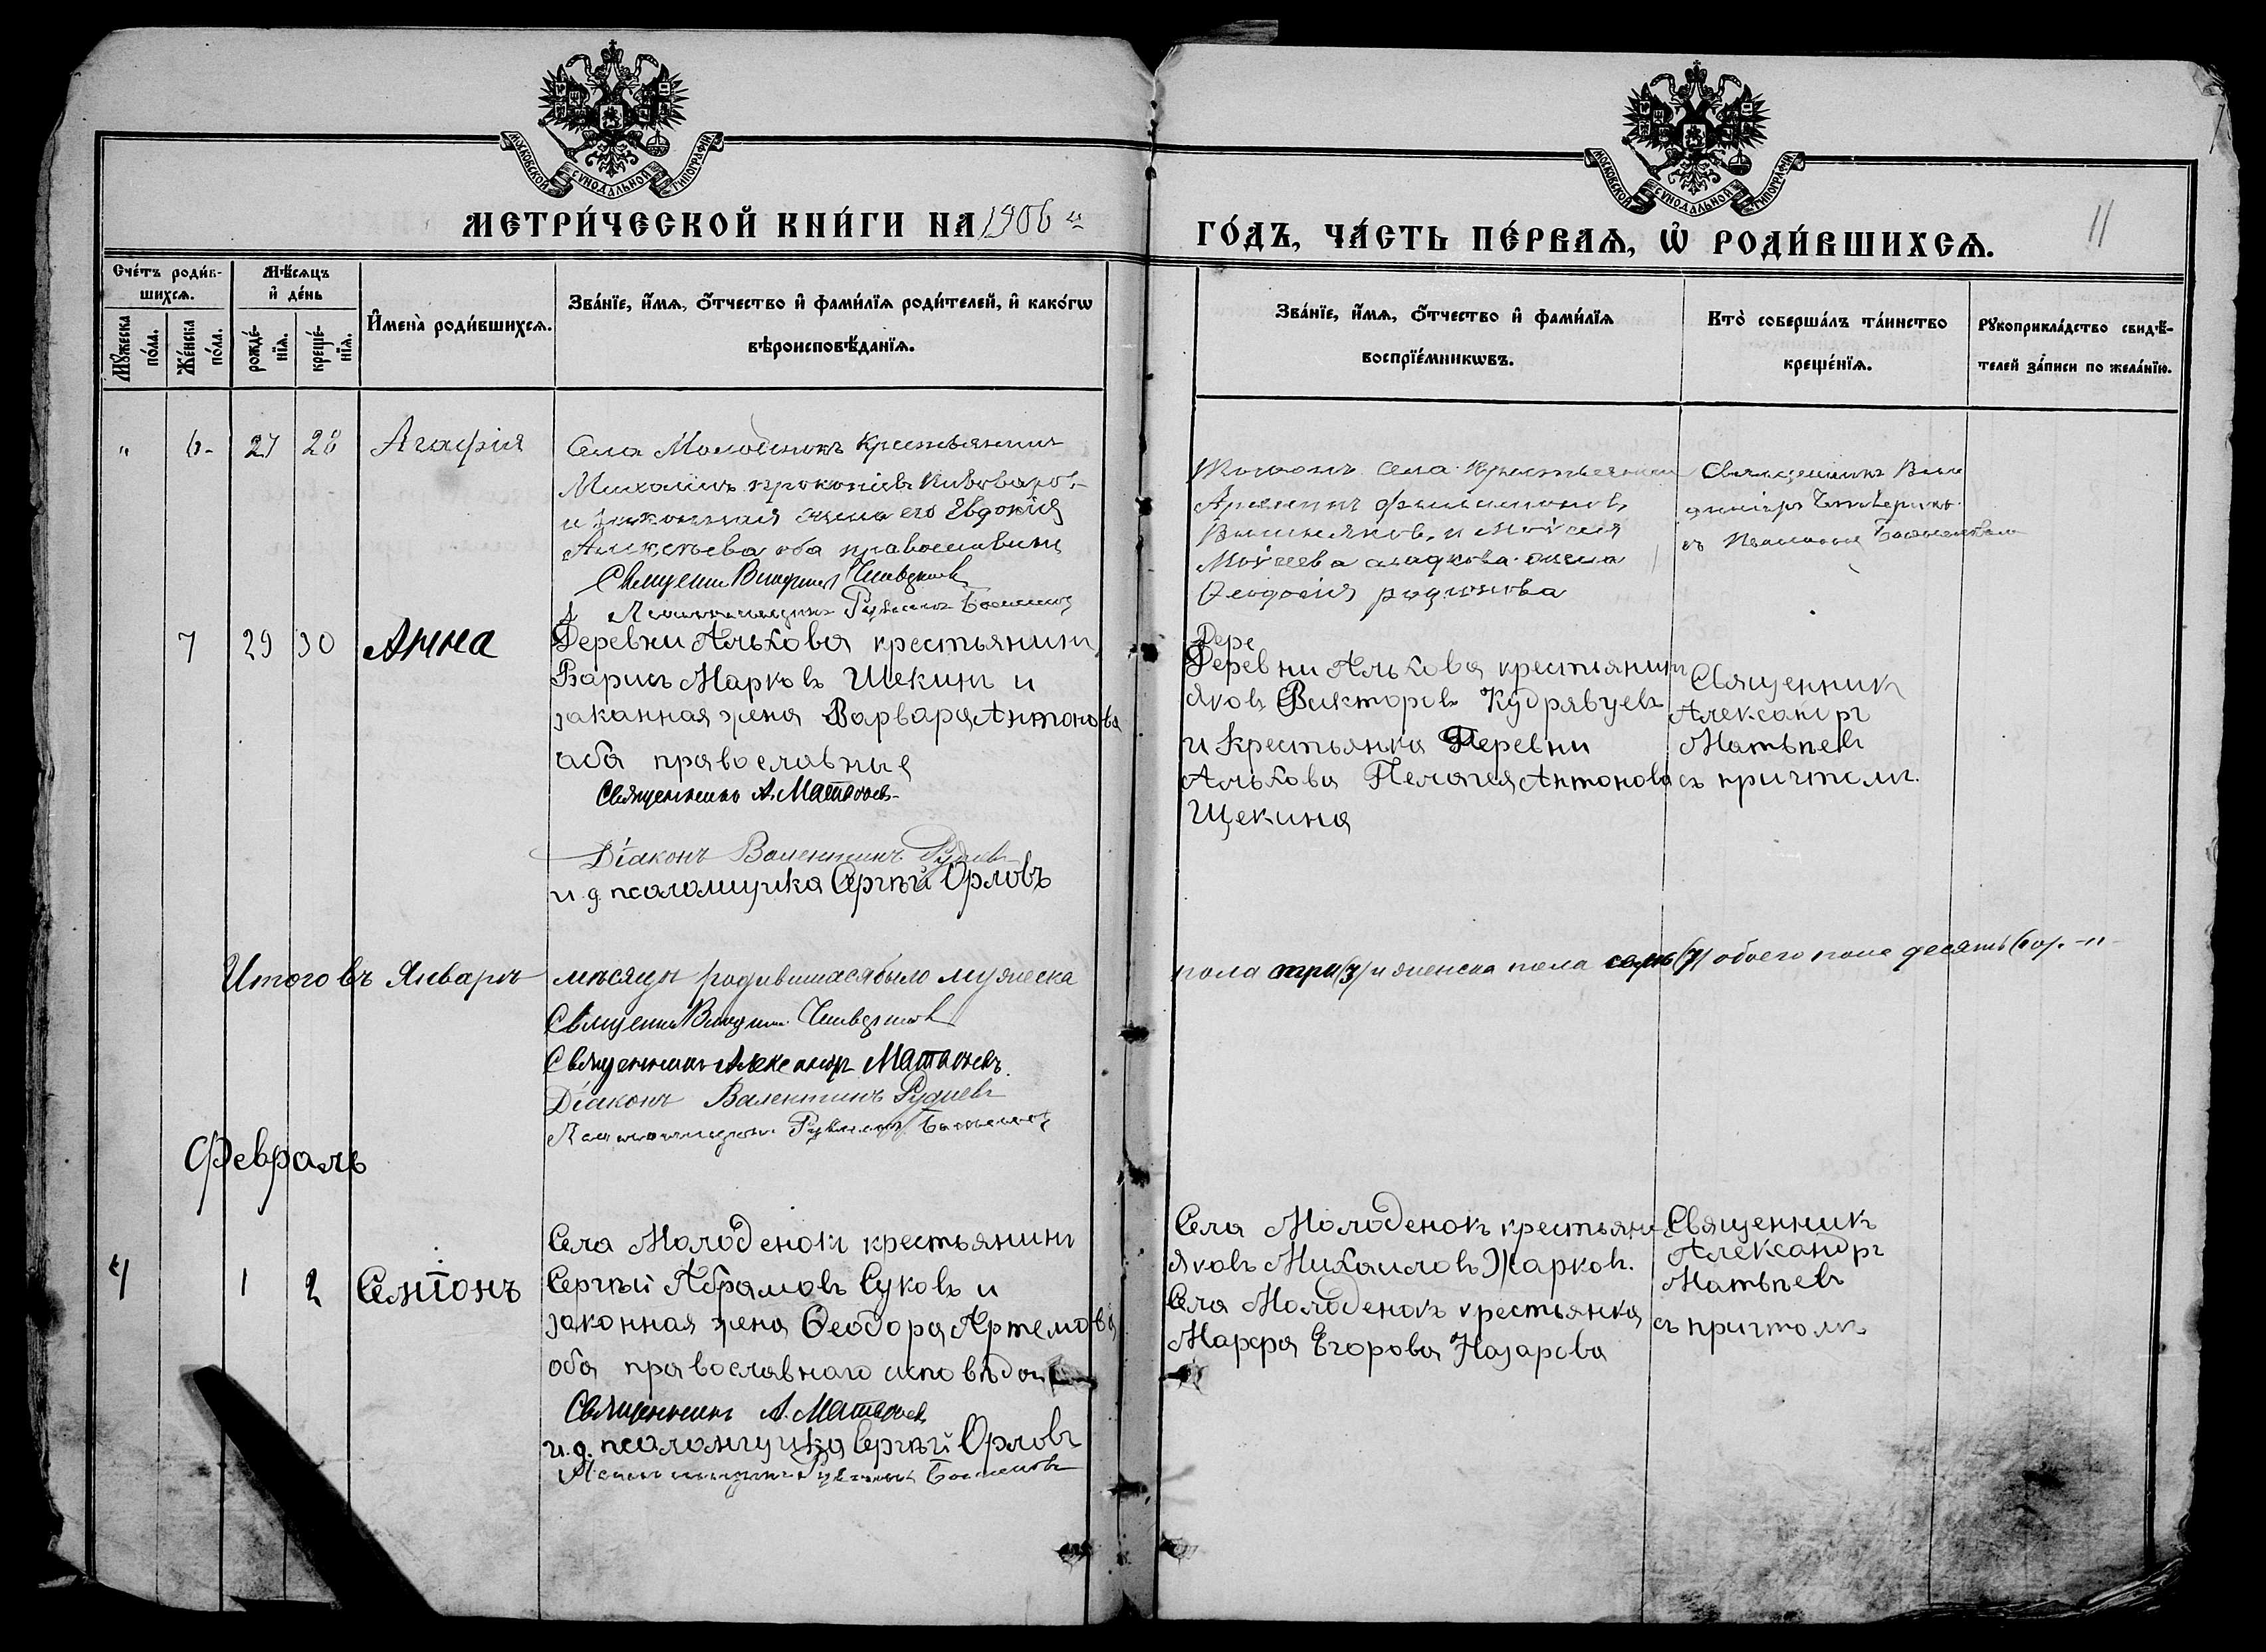 МОСКОВСКОЙ СѴНОДАЛЬНОЙ ТИПОГРАФІИ
МОСКОВСКОЙ СѴНОДАЛЬНОЙ ТИПОГРАФІИ
МЕТРИ́ЧЕСКОЙ КНИ́ГИ НА 1906 й
ГО́ДЪ, ЧА́СТЬ ПЕ́РВАѦ, Ѡ҆ РОДИ́ВШИХСѦ.
11
Сче́тъ роди́в-
шихсѧ.
Мѣ́сѧцъ
и҆ де́нь
Мꙋ́жеска
по́ла.
Же́нска
по́ла.
рожде́-
нїѧ.
креще́-
нїѧ.
И҆мена̀ роди́вшихсѧ.
Зва́нїе, и҆́мѧ, ѻ҆́тчество и҆ фами́лїѧ роди́телей, и҆ како́гѡ
вѣроисповѣ́данїѧ.
Зва́нїе, и҆́мѧ, ѻ҆́тчество и҆ фами́лїѧ
воспрїе́мникѡвъ.
Кто̀ соверша́лъ та́инство
креще́нїѧ.
Рꙋкоприкла́дство свидѣ́-
телей за́писи по жела́нїю.
" 6. 27 28 Агафія
Села Молоденокъ крестьянинъ
Михаилъ Прокопіевъ Пивоваровъ
и законная жена его Евдокія
Алексѣева оба православные
Священник Владимір
Псаломщикъ
села крестьянин
Вишняковъ и
Моисеева жена
Ѳеодосія Родіонова
Священникъ Вла
димір
съ
7 29 30 Анна
Деревни Альхова крестьянинъ
Марковъ Щекинъ и
законная жена Варвара Антонова
оба православные
Священникъ А. Матвѣевъ
Діаконъ Валентинъ Руднев
и. д. псаломщика Сергѣй Орловъ
Дере
Деревни Альхова крестиянинъ
Яковъ Викторовъ Кудрявцевъ
и крестьянка Деревни
Альхова Пелагея Антонова
Щекина
Священникъ
Александръ
Матвѣевъ
съ причтомъ.
Итого въ Январѣ мѣсяцѣ родившихся было мужеска
пола три (3) и женска пола семь (7) обоего пола десять (10). —"—
Священник Владимир
Священникъ Александръ Матвѣевъ.
Діаконъ Валентинъ Руднев
Псаломщикъ
Февраль
4 1 2 Семіонъ
Села Молоденокъ крестьянинъ
Сергѣй Абрамовъ Суковъ и
законная жена Ѳеодора Артемова
оба православнаго исповѣдан
Священникъ А. Матвѣевъ
и. д. псаломщика Сергѣй Орловъ
Псаломщикъ
Села Молоденокъ крестьяни
Яковъ Михаиловъ Жарковъ.
Села Молоденокъ крестьянка
Марфа Егорова Назарова
Священникъ
Александръ
Матвѣевъ
съ причтомъ